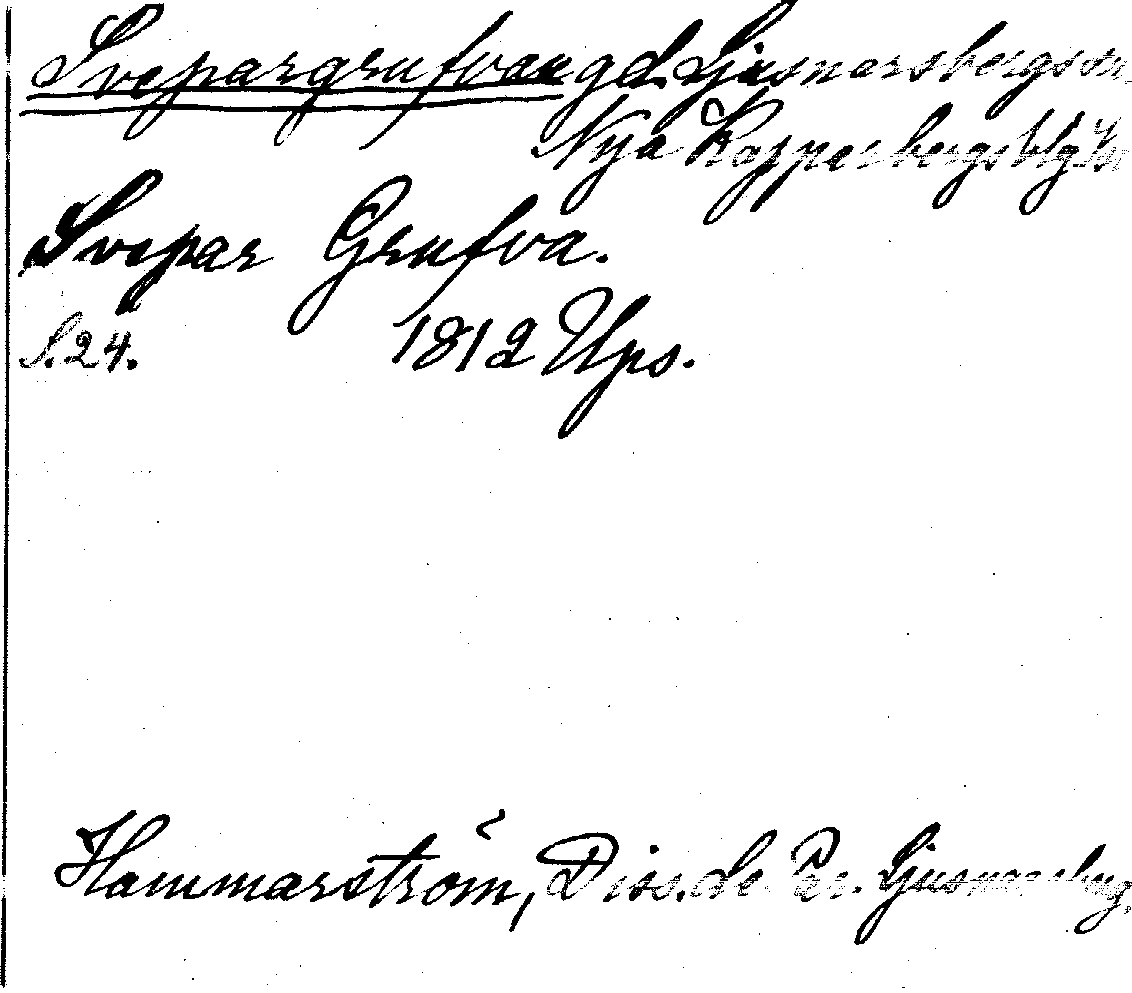 Svepargrufvan gd. Ljusnarsbergs sn.
Nya Kopparbergs blg
Svepar Grufva.
S. 24. 1812 Ups.
Hammarström, Diss. de Par. Ljusnarsberg.